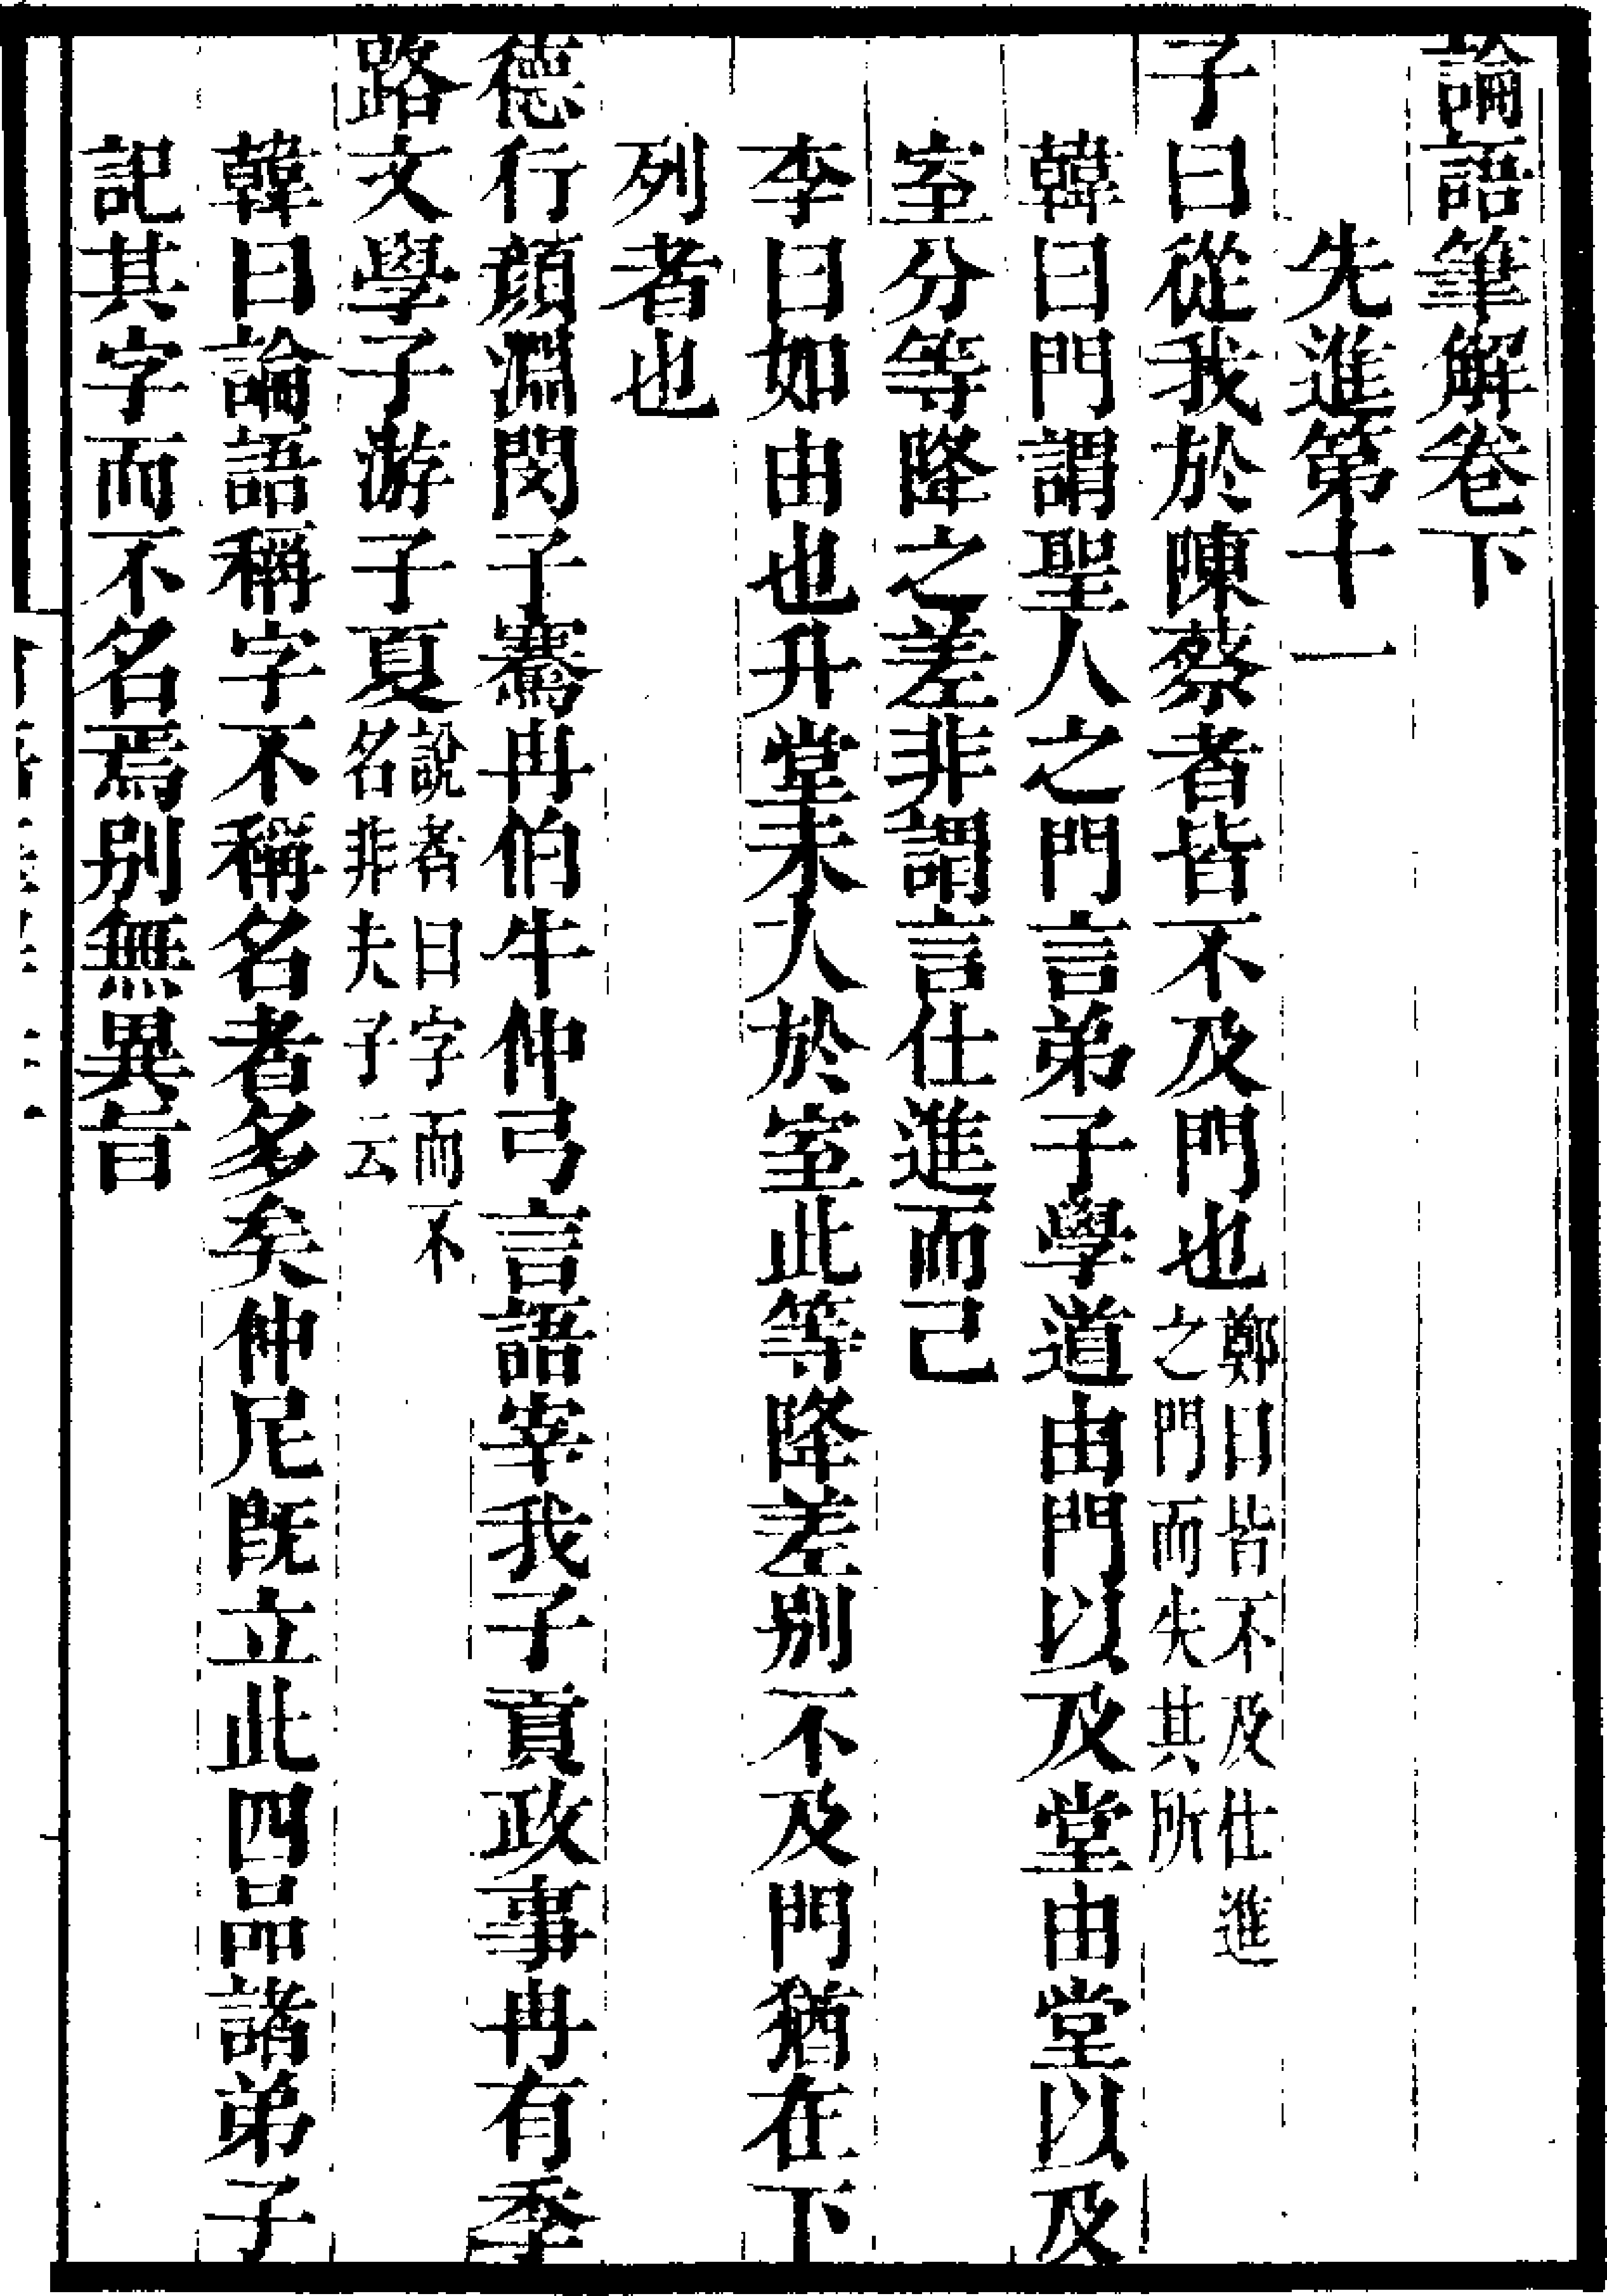 論語筆解卷下
先進第十一
子曰從我於陳蔡者皆不及門也鄭曰皆不及仕進之門而失其所
韓曰門謂聖人之門言弟子學道由門以及堂由堂以及
室分等降之差非謂言仕進而已
李曰如由也升堂未入於室此等降差别不及門猶在下
列者也
德行顔淵閔子騫冉伯牛仲弓言語宰我子貢政事冉有季
路文學子游子夏說者曰字而不名非夫子云
韓曰論語稱字不稱名者多矣仲尼旣立此四品諸弟子
記其字而不名焉别無異旨